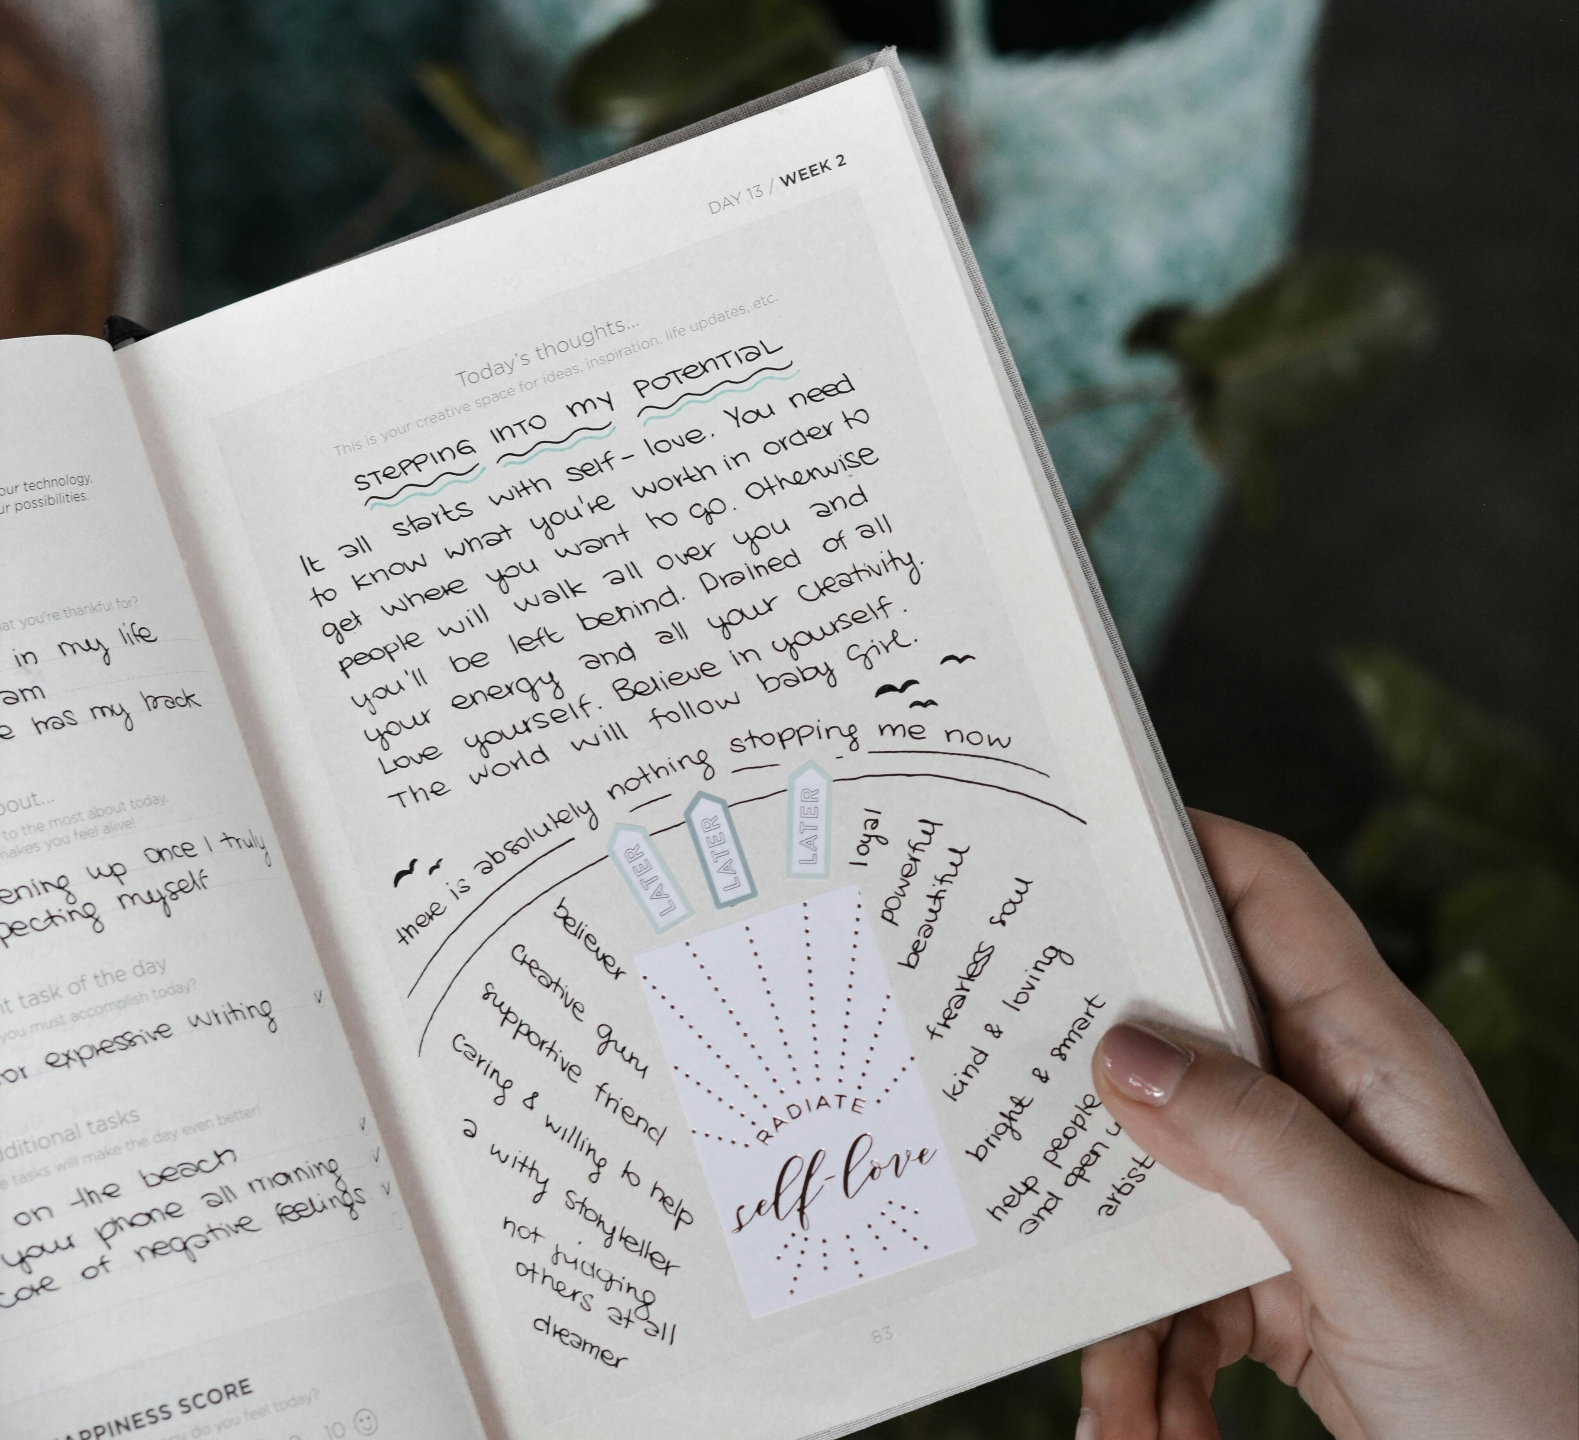 our technology,
ur possibilities.
at you're thankful for?
in my life
am
e has my back
bout...
to the most about today.
makes you feel alive!
ening up once I truly
pecting myself
nt task of the day
you must accomplish today?
or expressive writing
dditional tasks
e tasks will make the day even better!
on the beach
your phone all morning
core of negative feelings
APPINESS SCORE
do you feel today?
10
DAY 13 / WEEK 2
Today's thoughts...
This is your creative space for ideas, inspiration, life updates, etc.
STEPPING INTO MY POTENTIAL
It all starts with self-love. You need
to know what you're worth in order to
get where you want to go. Otherwise
people will walk all over you and
you'll be left behind. Drained of all
your energy and all your creativity.
Love yourself. Believe in yourself.
The world will follow baby girl.
there is absolutely nothing stopping me now
LATER
LATER
LATER
believer
creative guru
supportive friend
caring & willing to help
a witty storyteller
not judging
others at all
dreamer
loyal
powerful
beautiful
frearless soul
kind & loving
bright & smart
help people
and open u
artist
RADIATE
self-love
83